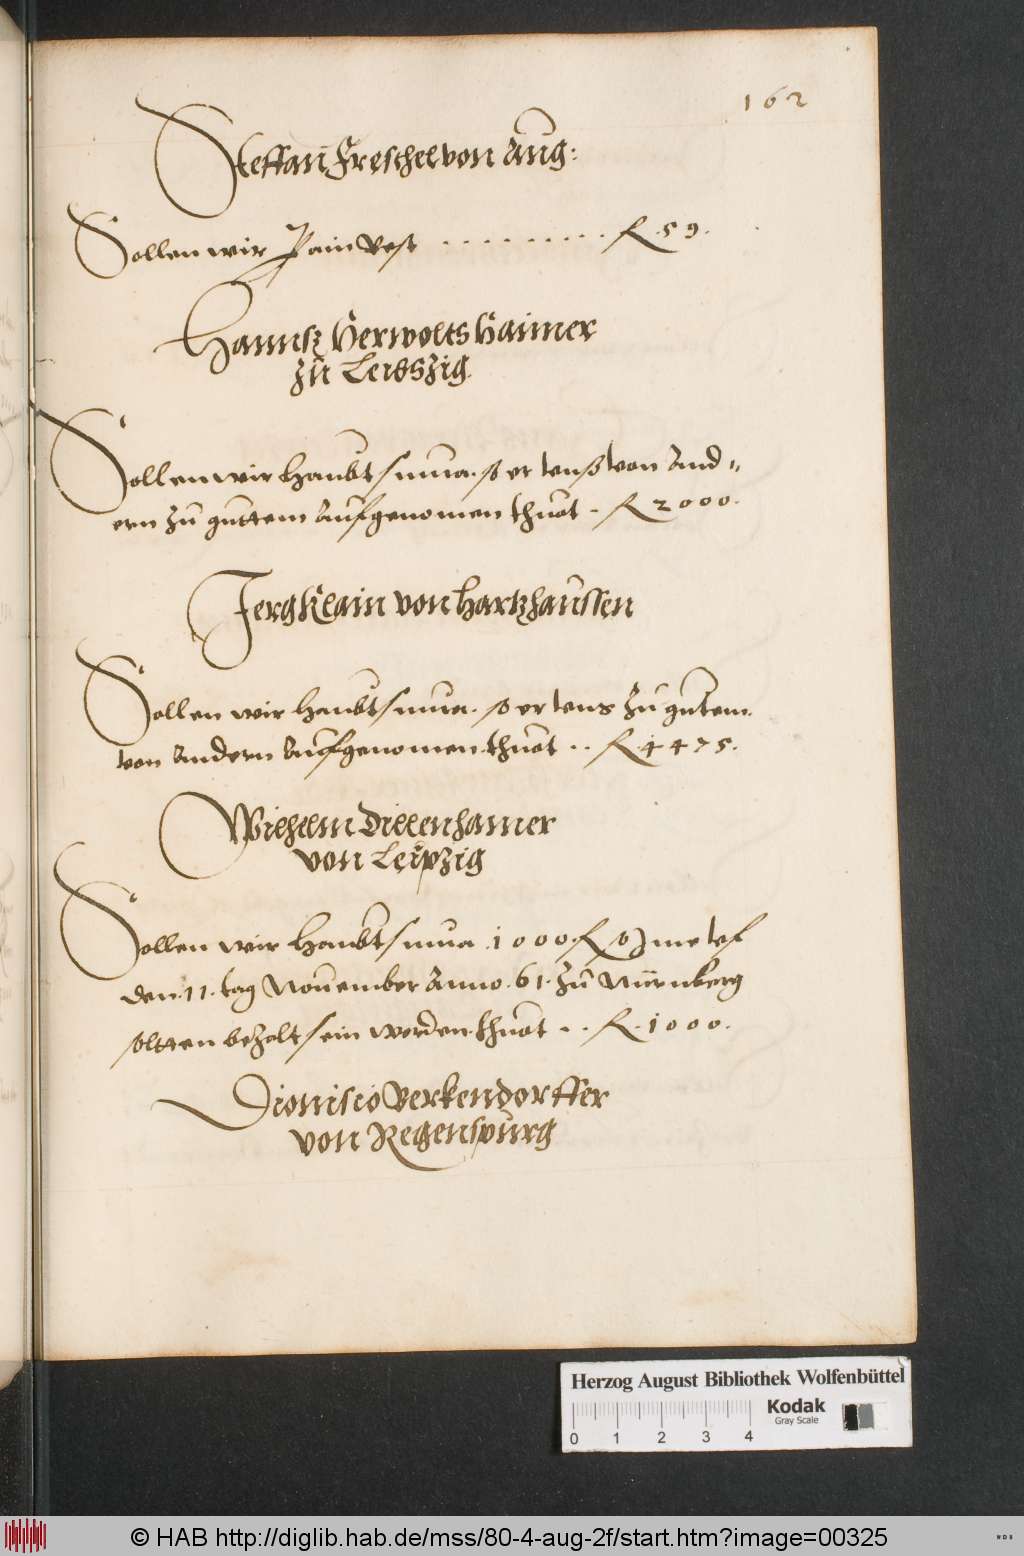 162
Steffan Freschel von Aug:
Sollen wir P ain Rest . . . . . . . . . . fl. 59.
Hannsz Herwolts Haimer
zu Leibszig
Sollen wir Haubt summa. so er unß von And¬
ern zu guttem Aufgenomen thuot - fl 2000.
Jerg Klain von Hartzhaussen
Sollen wir Haubt summa. so er uns zu gutem
von Andern Aufgenomen. thuot . . fl. 4475.
Wilhelm Dillenhamer
von Leipzig
Sollen wir Haubt summa 1000. fl so
den. 11. tag November Anno. 61. zu Nürnberg
soltten bezalt sein worden. thuot - . fl. 1000.
Dionisio Verkendorffer
von Regenspurg
Herzog August Bibliothek Wolfenbüttel
Kodak
Gray Scale
0 1 2 3 4
© HAB http://diglib.hab.de/mss/80-4-aug-2f/start.htm?image=00325